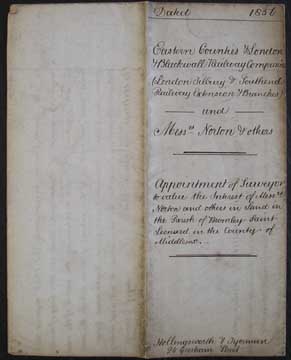 Dated 1856
Eastern Counties & London
& Blackwall Railway Companies
(London Tilbury & Southend
Railway Extension & Branches)
and
Mess.rs Norton & others
Appointment of Surveyor
to value the Interest of Mess.rs
Norton and others in Land in
the Parish of Bromley Saint
Leonard in the County of
Middlesex
Hollingsworth & Tyerman
24 Gresham Street